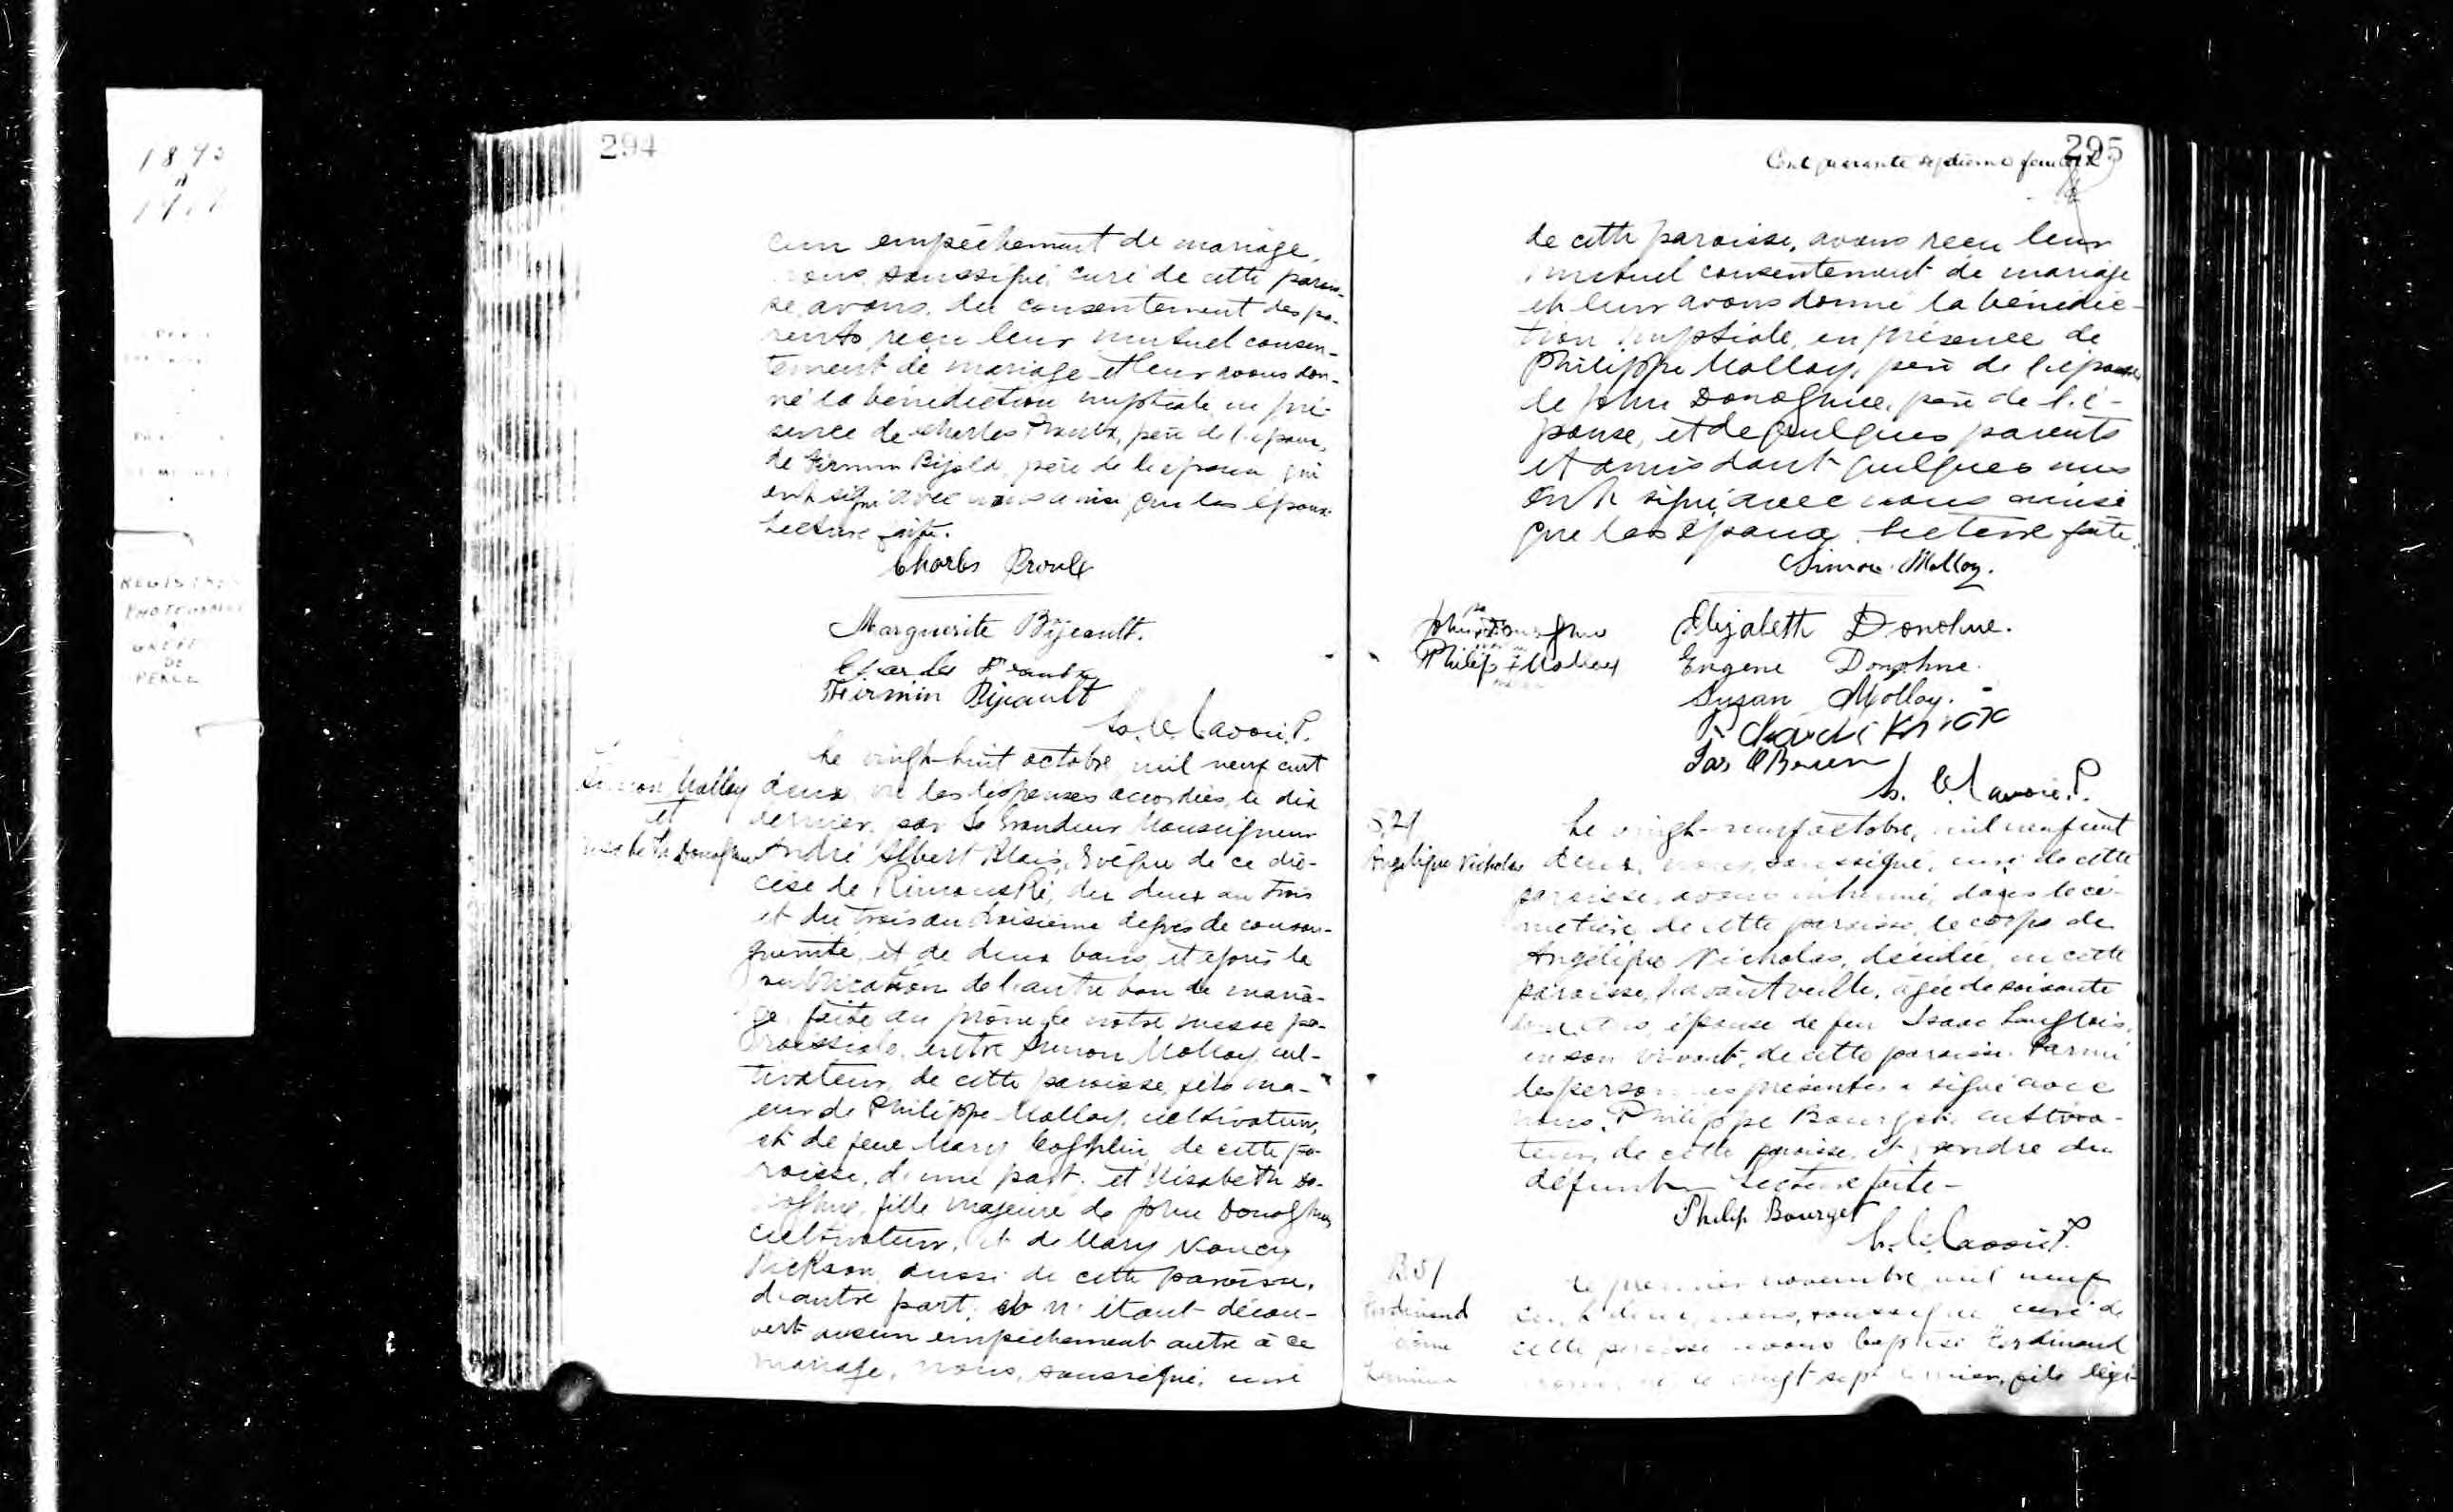 294
cun empêchement de mariage,
nous, soussigné, curé de cette parois-
se, avons, du consentement des pa-
rents, reçu leur mutuel consen-
tement de mariage et leur avons don-
né la bénédiction nuptiale en pré-
sence de Charles Proulx, père de l'époux,
de Firmin Bijold, père de l'épouse, qui
ont signé avec nous ainsi que les époux.
Lecture faite.
Charles Proulx
Marguerite Bijeault.
Charles Proulx
Firmin Bijeault
Ls. C. Lavoie, P.
Simon Molloy
et
Elisabeth Donoghue
Le vingt-huit octobre mil neuf cent
deux, vu les dispenses accordées, le dix
dernier, par Sa Grandeur Monseigneur
André Albert Blais, Evêque de ce dio-
cèse de Rimouski, du deux au trois
et du trois au troisième degrés de consan-
guinité, et de deux bans, et après la
publication de l'autre ban de maria-
ge, faite au prône de notre messe pa-
roissiale, entre Simon Molloy, cul-
tivateur, de cette paroisse, fils ma-
eur de Philippe Molloy, cultivateur,
et de feue Mary Coghlin, de cette pa-
roisse, d'une part; et Elisabeth Do-
noghue, fille majeure de John Donoghue
cultivateur, et de Mary Nancy
Dickson, aussi de cette paroisse,
d'autre part; et n'étant décou-
vert aucun empêchement autre à ce
mariage, nous, soussigné, curé
295
Cent quarante septième feuillet
de cette paroisse, avons reçu leur
mutuel consentement de mariage
et leur avons donné la bénédic-
tion nuptiale, en présence de
Philippe Molloy, père de l'époux
de John Donoghue, père de l'é-
pouse, et de quelques parents
et amis dont quelques uns
ont signé avec nous ainsi
que les époux. Lecture faite.
Simon Molloy.
John Donoghue
Elizabeth Donohue.
Philip Molloy
Eugene Donohue.
Susan Molloy.
Knox
Jas OBrien
Ls. C. Lavoie, P.
S.21
Angelique Nicholas
Le vingt-neuf octobre, mil neuf cent
deux, nous, soussigné, curé de cette
paroisse, avons inhumé, dans le ci-
metière de cette paroisse, le corps de
Angélique Nicholas, décédée, en cette
paroisse, l'avant veille, âgée de soixante
ans, épouse de feu Isaac Langlois,
en son vivant, de cette paroisse. Parmi
les personnes présentes a signé avec
nous, Philippe Bourget, cultiva-
teur, de cette paroisse, et gendre du
défunt. Lecture faite -
Philip Bourget
Ls. C. Lavoie, P.
B.51
Ferdinand
Le premier novembre, mil neuf
cent deux, nous, soussigné curé de
cette paroisse avons baptisé Ferdinand
né le vingt sept dernier, fils légi-
REGISTRES
PHOTOGRAPHIÉS
GREFFE
DE
PERCÉ